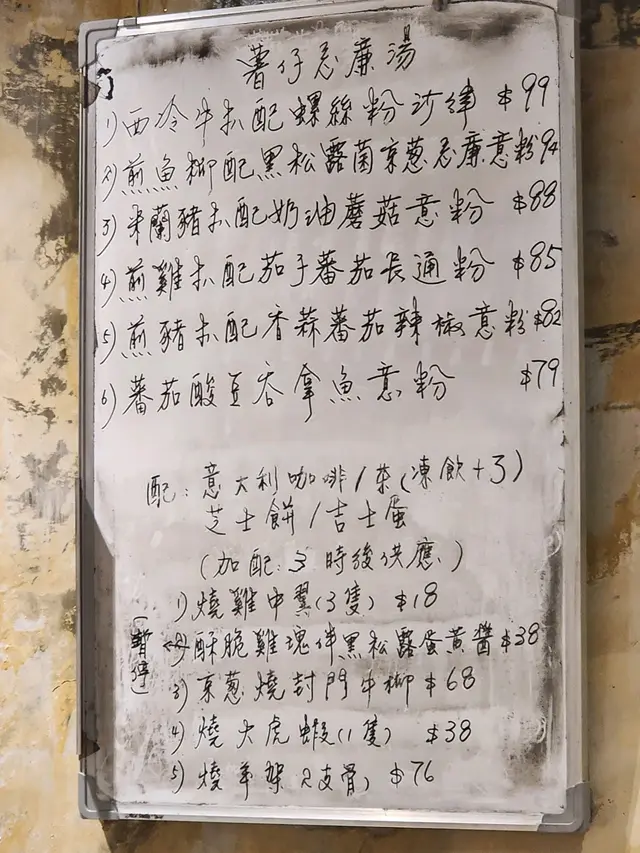 薯仔忌廉湯
1) 西冷牛扒配螺絲粉沙律 $99
2) 煎魚柳配黑松露菌京葱忌廉意粉 94
3) 米蘭豬扒配奶油蘑菇意粉 $88
4) 煎雞扒配茄子蕃茄長通粉 $85
5) 煎豬扒配香蒜蕃茄辣椒意粉 $82
6) 蕃茄酸豆吞拿魚意粉 $79
配: 意大利咖啡/茶(凍飲+3)
芝士餅/吉士蛋
(加配: 3時後供應)
1) 燒雞中翼(3隻) $18
(暫停) 2) 酥脆雞塊伴黑松露蛋黃醬 $38
3) 京葱燒封門牛柳 $68
4) 燒大虎蝦(1隻) $38
5) 燒羊架 2支骨) $76